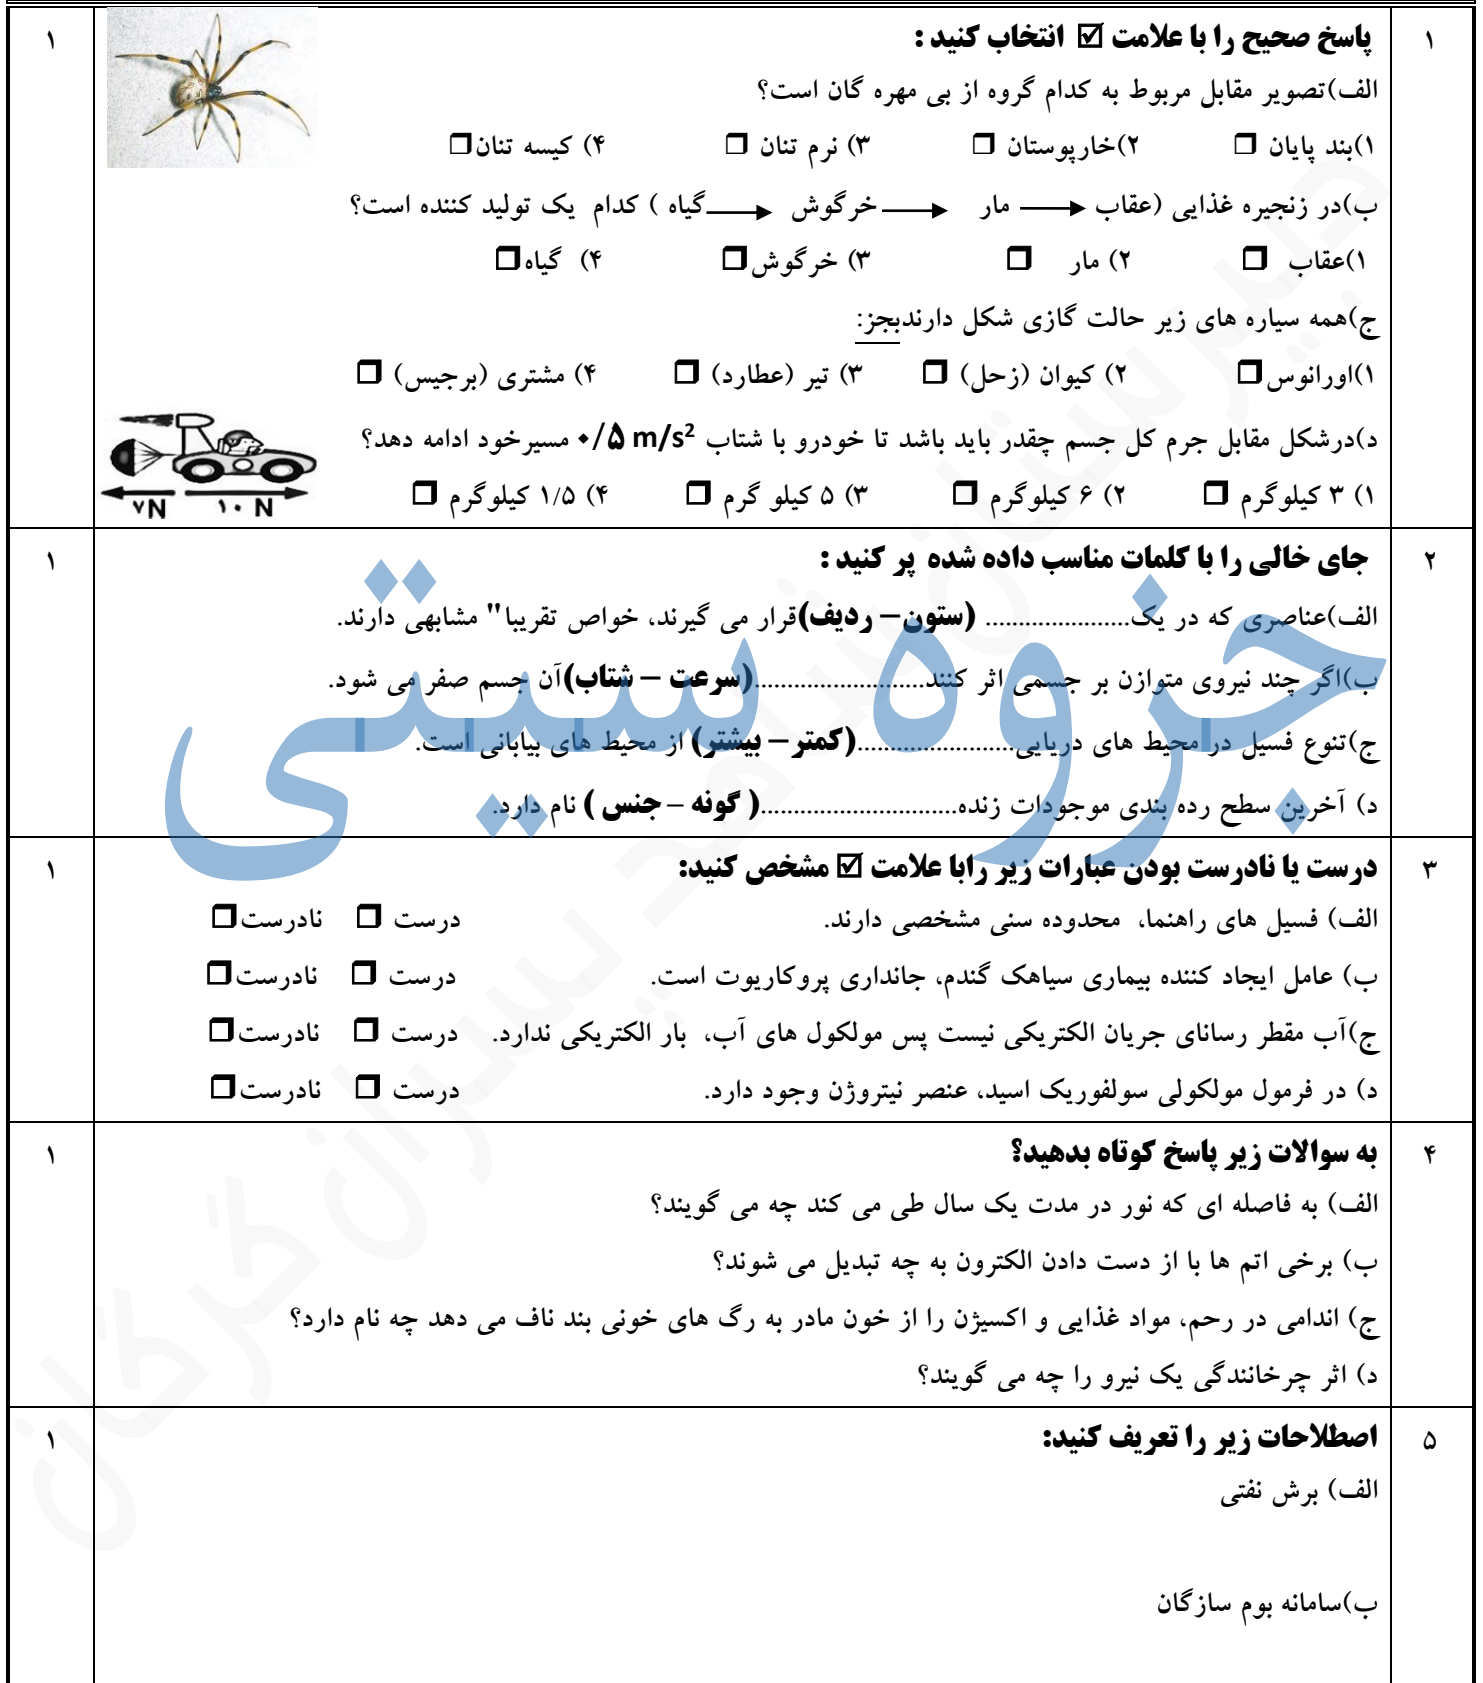 ۱ پاسخ صحیح را با علامت ☑ انتخاب کنید : ۱
الف)تصویر مقابل مربوط به کدام گروه از بی مهره گان است؟
۱)بند پایان ❒ ۲)خارپوستان ❒ ۳) نرم تنان ❒ ۴) کیسه تنان❒
ب)در زنجیره غذایی (عقاب ← مار ← خرگوش ← گیاه ) کدام یک تولید کننده است؟
۱)عقاب ❒ ۲) مار ❒ ۳) خرگوش❒ ۴) گیاه❒
ج)همه سیاره های زیر حالت گازی شکل دارندبجز:
۱)اورانوس❒ ۲) کیوان (زحل) ❒ ۳) تیر (عطارد) ❒ ۴) مشتری (برجیس) ❒
د)درشکل مقابل جرم کل جسم چقدر باید باشد تا خودرو با شتاب ۰/۵ m/s² مسیرخود ادامه دهد؟
۱) ۳ کیلوگرم ❒ ۲) ۶ کیلوگرم ❒ ۳) ۵ کیلو گرم ❒ ۴) ۱/۵ کیلوگرم ❒
۷N ۱۰ N
۲ جای خالی را با کلمات مناسب داده شده پر کنید : ۱
الف)عناصری که در یک...................... (ستون– ردیف)قرار می گیرند، خواص تقریبا" مشابهی دارند.
ب)اگر چند نیروی متوازن بر جسمی اثر کنند..........................(سرعت – شتاب)آن جسم صفر می شود.
ج)تنوع فسیل در محیط های دریایی........................(کمتر– بیشتر) از محیط های بیابانی است.
د) آخرین سطح رده بندی موجودات زنده..............................( گونه – جنس ) نام دارد.
جزوه سیتی
۳ درست یا نادرست بودن عبارات زیر رابا علامت ☑ مشخص کنید: ۱
الف) فسیل های راهنما، محدوده سنی مشخصی دارند. درست ❒ نادرست❒
ب) عامل ایجاد کننده بیماری سیاهک گندم، جانداری پروکاریوت است. درست ❒ نادرست❒
ج)آب مقطر رسانای جریان الکتریکی نیست پس مولکول های آب، بار الکتریکی ندارد. درست ❒ نادرست❒
د) در فرمول مولکولی سولفوریک اسید، عنصر نیتروژن وجود دارد. درست ❒ نادرست❒
۴ به سوالات زیر پاسخ کوتاه بدهید؟ ۱
الف) به فاصله ای که نور در مدت یک سال طی می کند چه می گویند؟
ب) برخی اتم ها با از دست دادن الکترون به چه تبدیل می شوند؟
ج) اندامی در رحم، مواد غذایی و اکسیژن را از خون مادر به رگ های خونی بند ناف می دهد چه نام دارد؟
د) اثر چرخانندگی یک نیرو را چه می گویند؟
۵ اصطلاحات زیر را تعریف کنید: ۱
الف) برش نفتی
ب)سامانه بوم سازگان
دبیرستان شاهد پسران گرگان